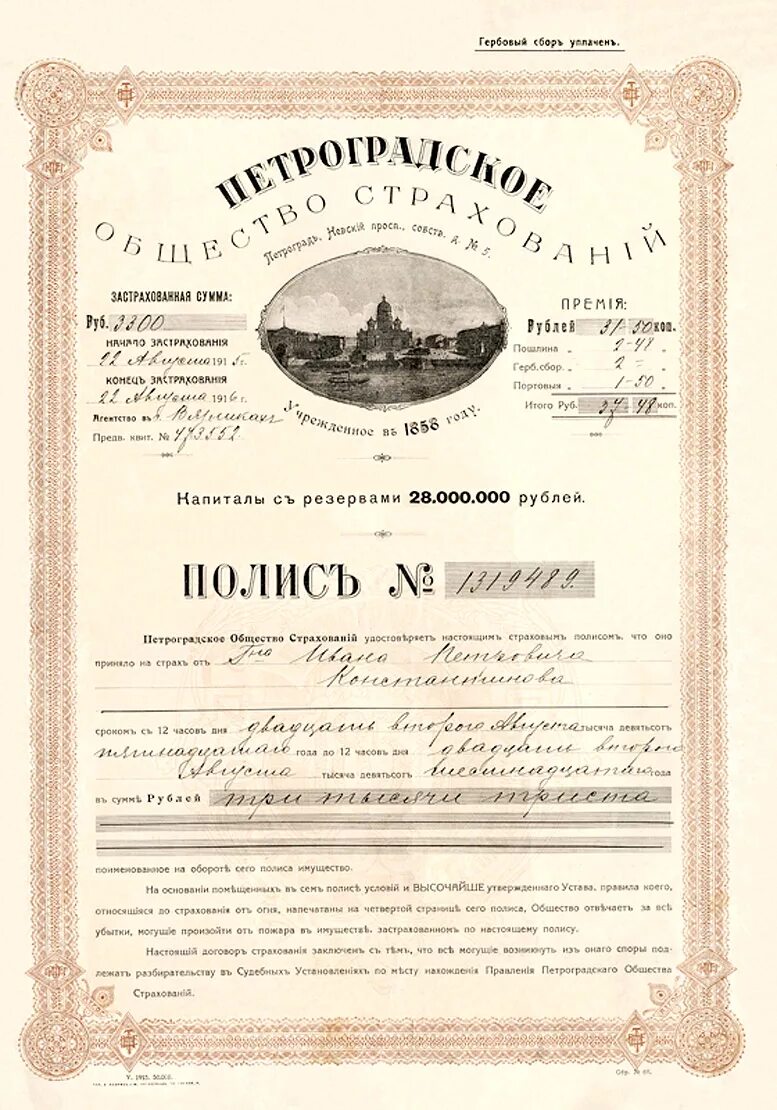 Гербовый сборъ уплаченъ.
ПЕТРОГРАДСКОЕ
ОБЩЕСТВО СТРАХОВАНІЙ
Петроградъ, Невскій просп., собств. д. № 5.
ЗАСТРАХОВАННАЯ СУММА:
Руб. 3300
НАЧАЛО ЗАСТРАХОВАНІЯ
22 Августа 1915 г.
КОНЕЦЪ ЗАСТРАХОВАНІЯ
22 Августа 1916 г.
Агентство въ г.
Предв. квит. № 473552
ПРЕМІЯ:
Рублей 31-50 коп.
Пошлина „ 2-48 „
Герб.сбор. „ 2 - „
Портовыя „ 1-50 „
Итого Руб. 37 48 коп.
Учрежденное въ 1858 году.
Капиталы съ резервами 28.000.000 рублей.
ПОЛИСЪ № 1319489.
Петроградское Общество Страхованій удостовѣряетъ настоящимъ страховымъ полисомъ, что оно
приняло на страхъ отъ Гна Ивана Петровича
Константинова
срокомъ съ 12 часовъ дня двадцать второго Августа тысяча девятьсотъ
пятнадцатаго года до 12 часовъ дня двадцать второго
Августа тысяча девятьсотъ шестнадцатаго года
въ суммѣ Рублей три тысячи триста
поименованное на оборотѣ сего полиса имущество.
На основаніи помѣщенныхъ въ семъ полисѣ условій и ВЫСОЧАЙШЕ утвержденнаго Устава, правила коего,
относящіяся до страхованія отъ огня, напечатаны на четвертой страницѣ сего полиса, Общество отвѣчаетъ за всѣ
убытки, могущіе произойти отъ пожара въ имуществѣ, застрахованномъ по настоящему полису.
Настоящій договоръ страхованія заключенъ съ тѣмъ, что всѣ могущіе возникнуть изъ онаго споры под-
лежатъ разбирательству въ Судебныхъ Установленіяхъ по мѣсту нахожденія Правленія Петроградскаго Общества
Страхованій.
V. 1915. 50.000.
Обр. № 68.